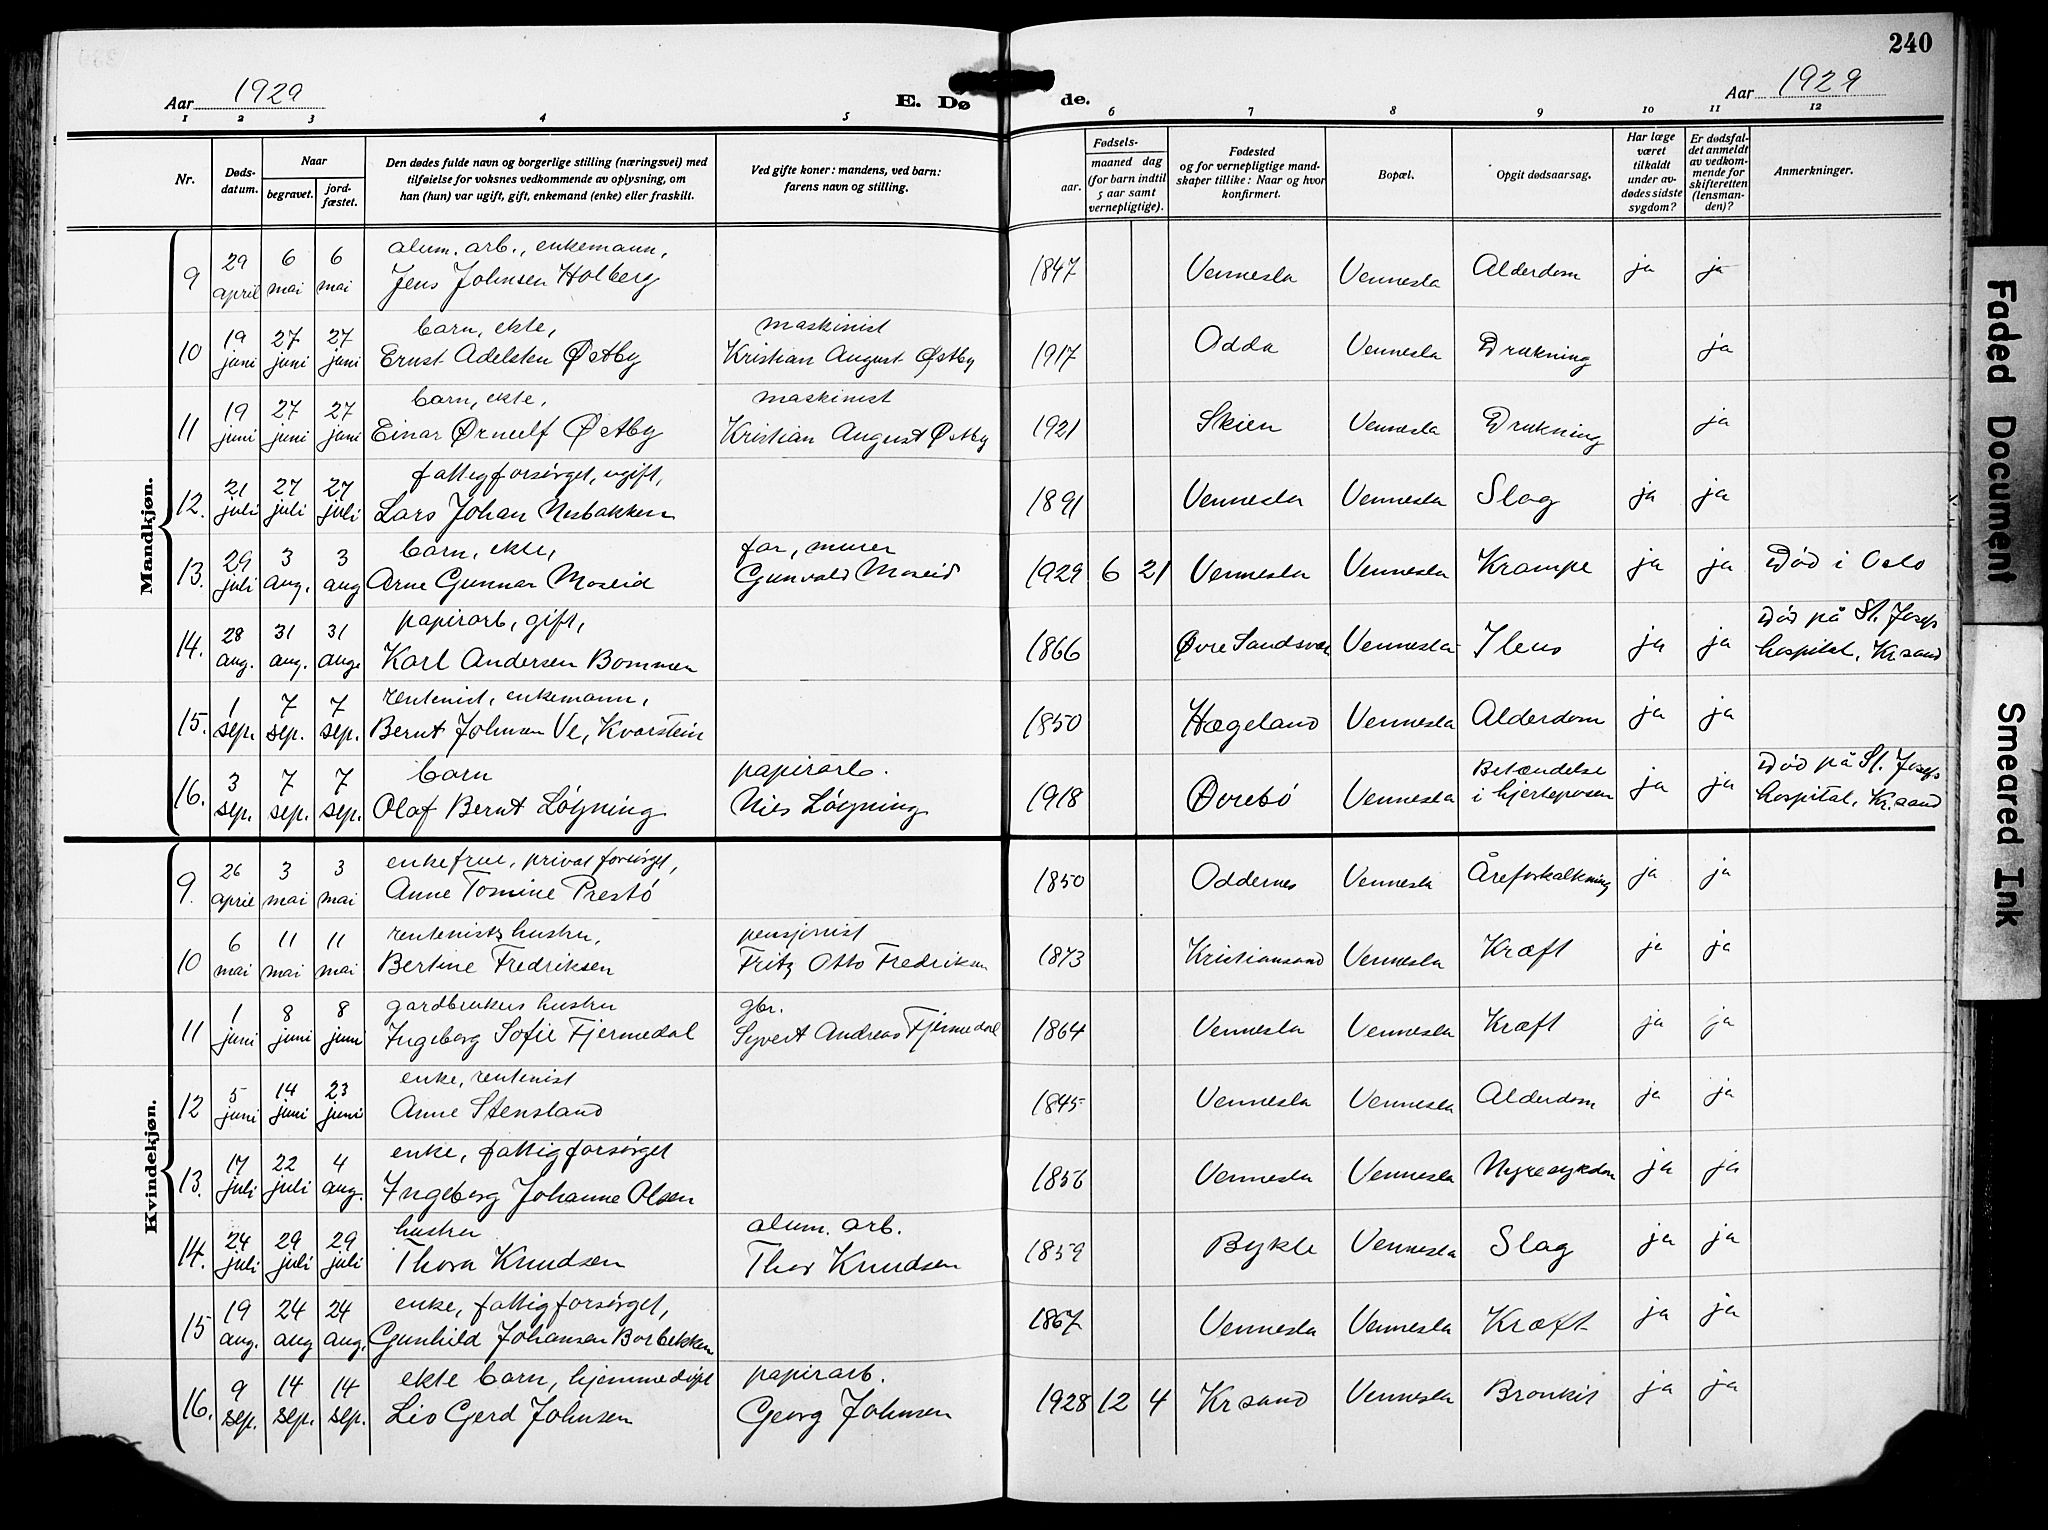 240
Aar 1929
E. Dø
de.
Aar 1929
1 2 3 4 5 6 7 8 9 10 11 12
Nr.
Døds-
datum.
Naar
begravet.
jord-
fæstet.
Den dødes fulde navn og borgerlige stilling (næringsvei) med
tilføielse for voksnes vedkommende av oplysning, om
han (hun) var ugift, gift, enkemand (enke) eller fraskilt.
Ved gifte koner: mandens, ved barn:
farens navn og stilling.
Fødsels-
aar.
maaned dag
(for barn indtil
5 aar samt
vernepligtige).
Fødested
og for vernepligtige mand-
skaper tillike: Naar og hvor
konfirmert.
Bopæl.
Opgit dødsaarsag.
Har læge
været
tilkaldt
under av-
dødes sidste
sygdom?
Er dødsfal-
det anmeldt
av vedkom-
mende for
skifteretten
(lensman-
den)?
Anmerkninger.
Mandkjøn.
alum. arb., enkemann,
9 29 april 6 mai 6 mai Jens Johnsen Holberg 1847 Vennesla Vennesla Alderdom ja ja
barn, ekte, maskinist
10 19 juni 27 juni 27 juni Ernst Adelsten Østby Kristian August Østby 1917 Odda Vennesla Drukning ja
barn, ekte, maskinist
11 19 juni 27 juni 27 juni Einar Ørnulf Østby Kristian August Østby 1921 Skien Vennesla Drukning ja
fattigforsørget, ugift,
12. 21 juli 27 juli 27 juli Lars Johan Nesbakken 1891 Vennesla Vennesla Slag ja ja
barn, ekte, far, murer
13. 29 juli 3 aug. 3 aug Arne Gunnar Moseid Gunvald Moseid 1929 6 21 Vennesla Vennesla Krampe ja ja Död i Oslo
papirarb, gift, Död på St. Josefs
14. 28 aug. 31 aug. 31 aug. Karl Andersen Bommen 1866 Øvre Sandsvær Vennesla Ileus ja ja hospital, Kr.sand
rentenist, enkemann,
15. 1 sep. 7 sep. 7 sep. Bernt Johnsen Ve, Kvarstein 1850 Hægeland Vennesla Alderdom ja ja
barn papirarb. Betændelse Död på St. Josefs
16. 3 sep. 7 sep. 7 sep. Olaf Bernt Løyning Nils Løyning 1918 Øvrebö Vennesla i hjerteposen ja ja hospital, Kr.sand
Kvindekjøn.
enkefrue, privat forsørget,
9. 26 april 3 mai 3 mai Anne Tomine Prestö 1850 Oddernes Vennesla Åreforkalkning ja ja
rentenists hustru, pensjonist
10 6 mai 11 mai 11 mai Bertine Fredriksen Fritz Otto Fredriksen 1873 Kristiansand Vennesla Kræft ja ja
gardbrukers hustru gbr.
11 1 juni 8 juni 8 juni Ingeborg Sofie Fjermedal Syvert Andreas Fjermedal 1864 Vennesla Vennesla Kræft ja ja
enke, rentenist
12 5 juni 14 juni 23 juni Anne Stensland 1845 Vennesla Vennesla Alderdom ja ja
enke, fattigforsørget
13. 17 juli 22 juli 4 aug. Ingeborg Johanne Olsen 1856 Vennesla Vennesla Nyresykdom ja ja
hustru alum. arb.
14. 24 juli 29 juli 29 juli Thora Knudsen Thor Knudsen 1859 Bykle Vennesla Slag ja ja
enke, fattigforsørget,
15 19 aug. 24 aug 24 aug. Gunhild Johansen Borbekken 1867 Vennesla Vennesla Kræft ja ja
ekte barn, hjemmedöpt papirarb.
16. 9 sep. 14 sep. 14 sep. Liv Gerd Johnsen Georg Johnsen 1928 12 4 Kr sand Vennesla Bronkit ja ja
Faded Document
Smeared Ink